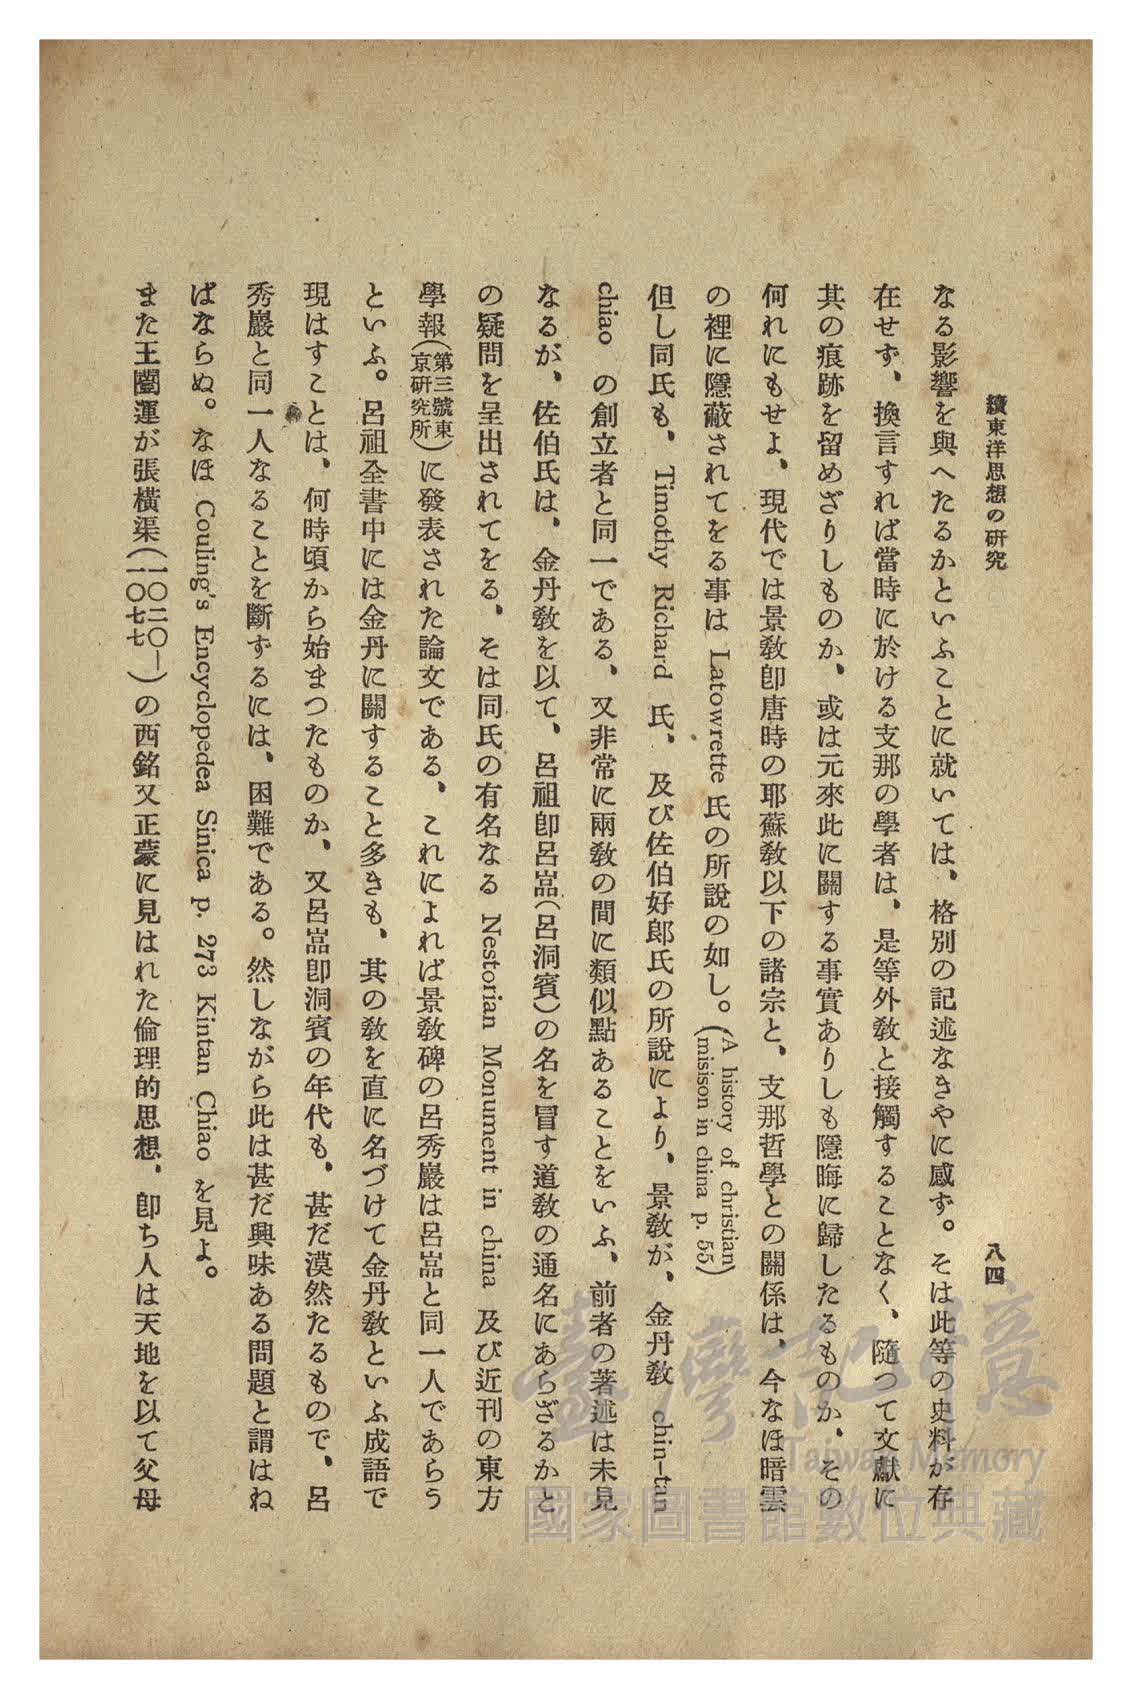 續東洋思想の研究
八四
なる影響を與へたるかといふことに就いては、格別の記述なきやに感ず。そは此等の史料が存
在せず、換言すれば當時に於ける支那の學者は、是等外敎と接觸することなく、隨つて文獻に
其の痕跡を留めざりしものか、或は元來此に關する事實ありしも隱晦に歸したるものか、その
何れにもせよ、現代では景敎卽唐時の耶蘇敎以下の諸宗と、支那哲學との關係は、今なほ暗雲
の裡に隱蔽されてをる事は Latowrette 氏の所說の如し。(A history of christian misison in china p. 55)
但し同氏も、Timothy Richard 氏、及び佐伯好郎氏の所說により、景敎が、金丹敎 chin-tan
chiao の創立者と同一である、又非常に兩敎の間に類似點あることをいふ、前者の著述は未見
なるが、佐伯氏は、金丹敎を以て、呂祖卽呂嵓(呂洞賓)の名を冒す道敎の通名にあらざるかと
の疑問を呈出されてをる、そは同氏の有名なる Nestorian Monument in china 及び近刊の東方
學報(第三號東京硏究所)に發表された論文である、これによれば景敎碑の呂秀巖は呂嵓と同一人であらう
といふ。呂祖全書中には金丹に關すること多きも、其の敎を直に名づけて金丹敎といふ成語で
現はすことは、何時頃から始まつたものか、又呂嵓卽洞賓の年代も、甚だ漠然たるもので、呂
秀巖と同一人なることを斷ずるには、困難である。然しながら此は甚だ興味ある問題と謂はね
ばならぬ。なほ Couling's Encyclopedea Sinica p. 273 Kintan Chiao を見よ。
また王闓運が張橫渠(一〇二〇—一〇七七)の西銘又正蒙に見はれた倫理的思想、卽ち人は天地を以て父母
臺灣記憶
Taiwan Memory
國家圖書館數位典藏